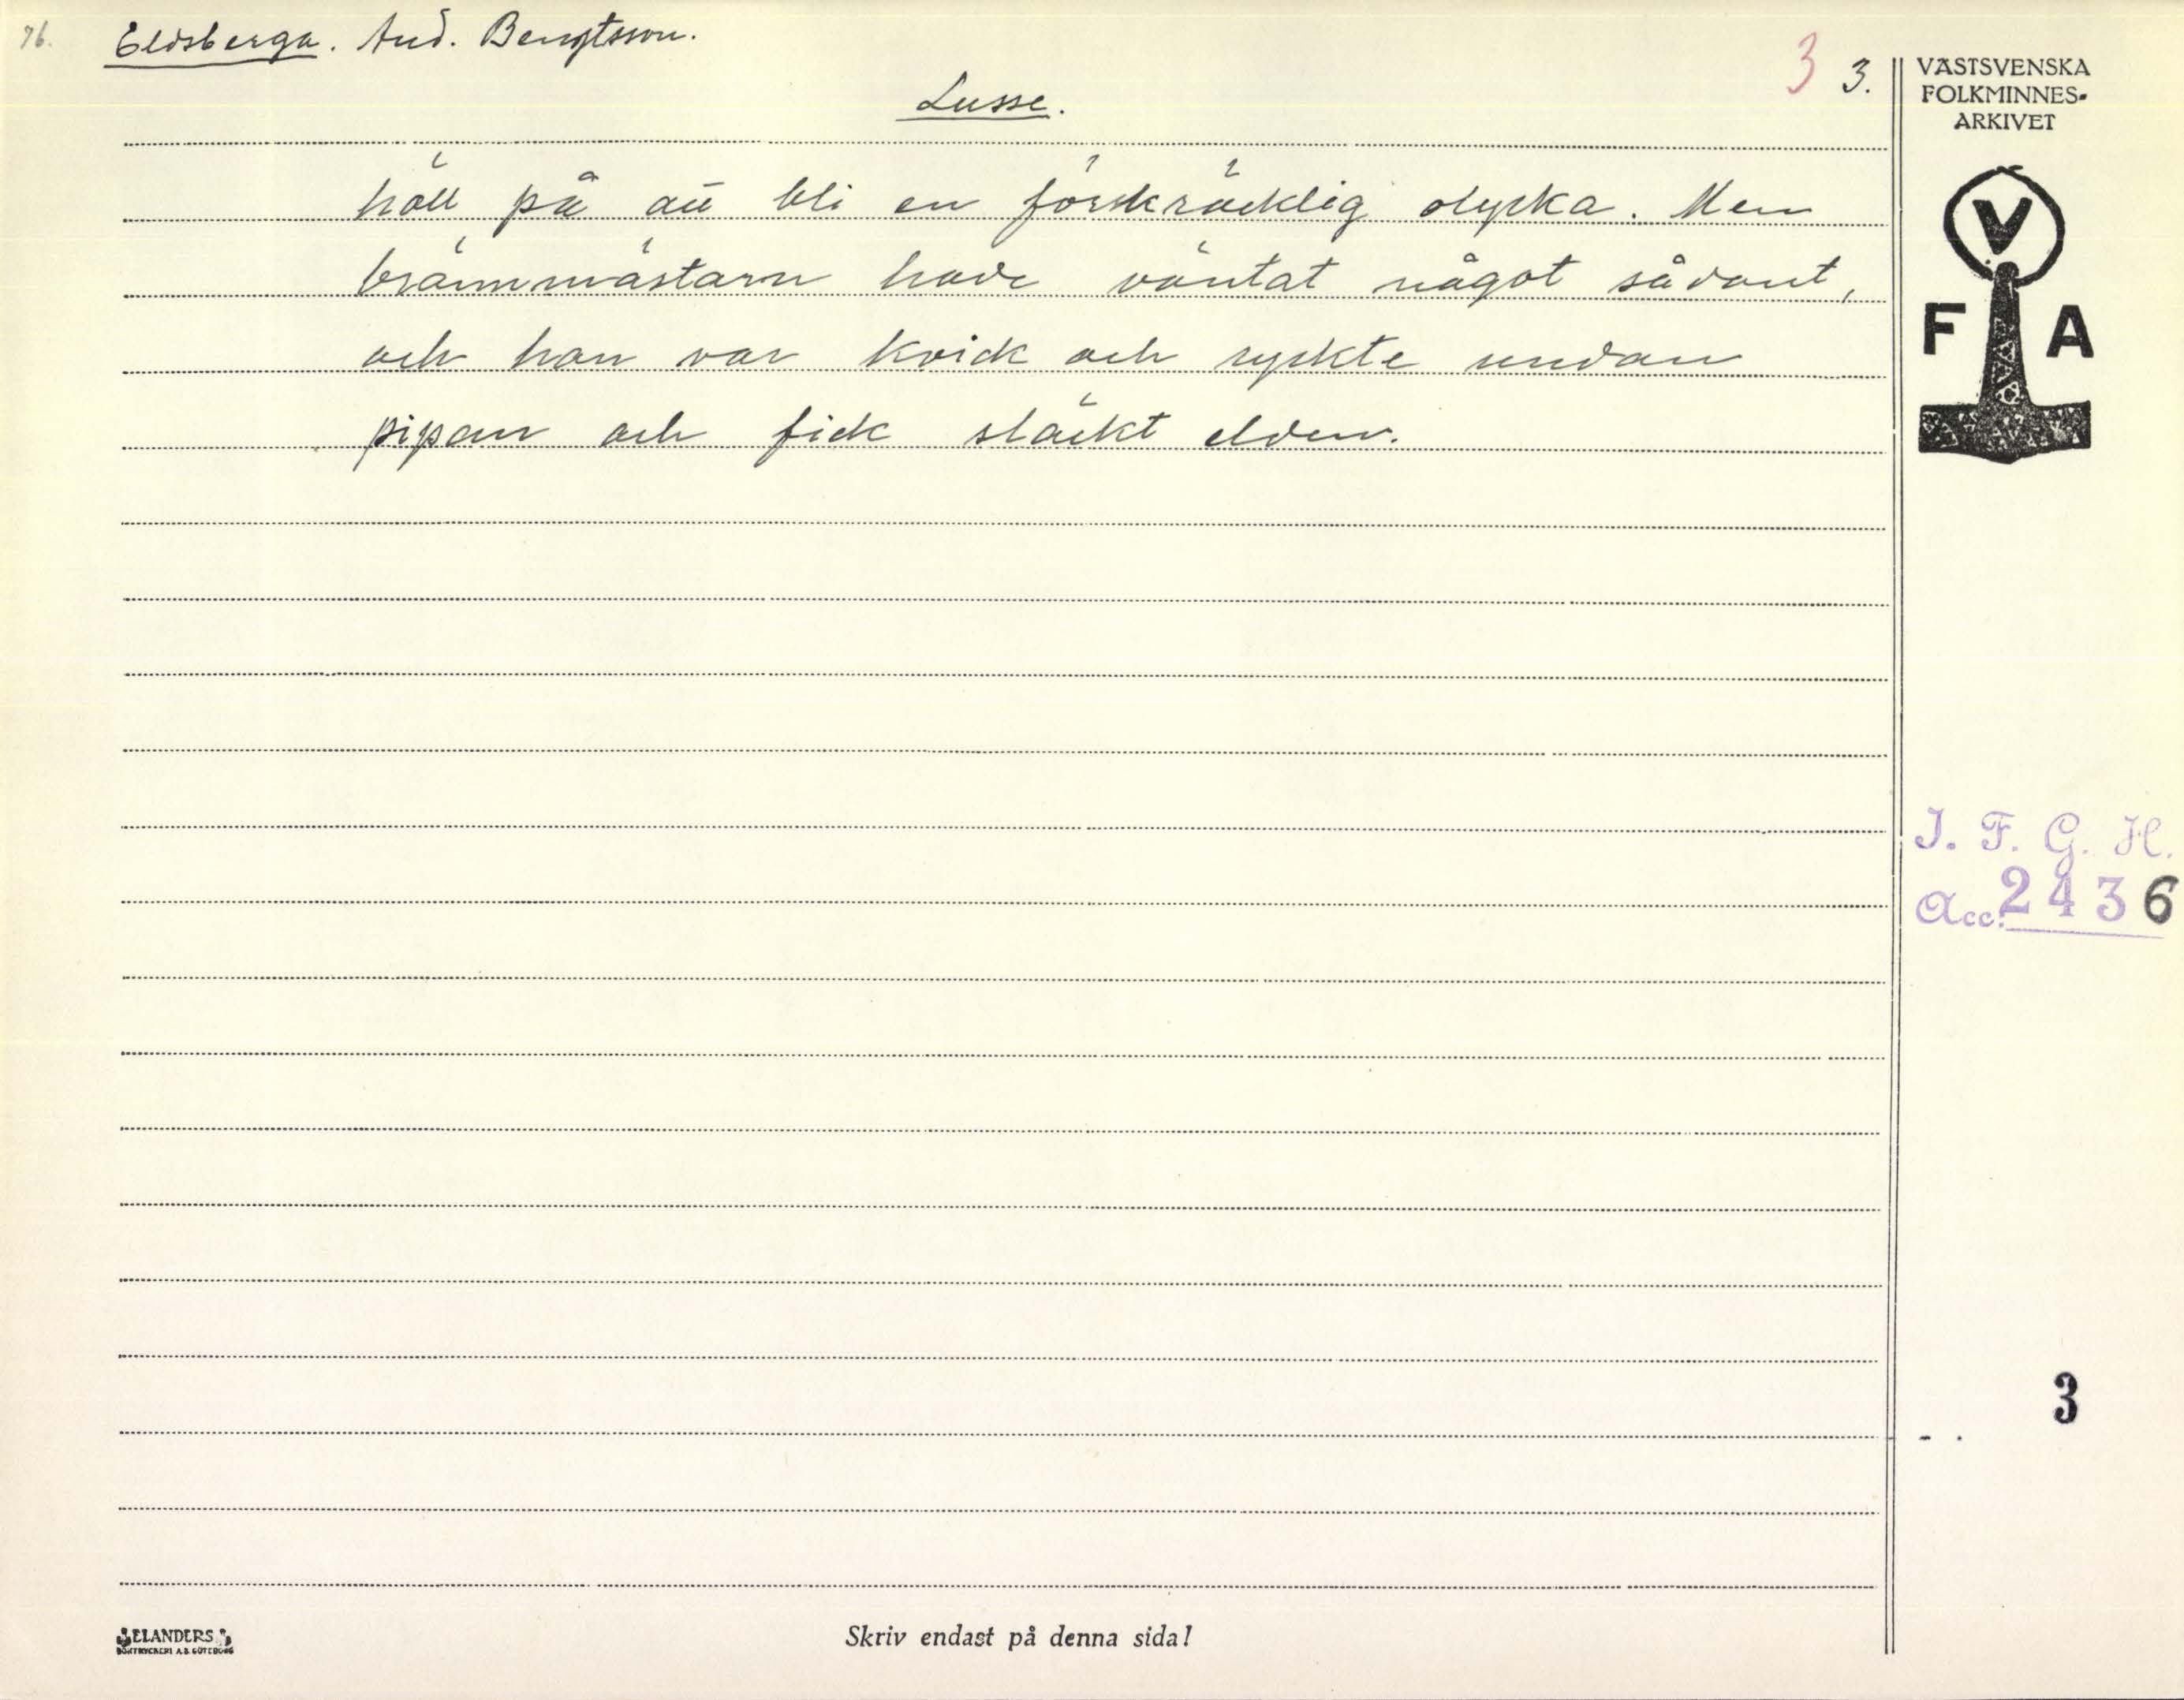 76. Eldsberga. And. Bengtsson.
Lusse.
3 3.
VÄSTSVENSKA
FOLKMINNES-
ARKIVET
höll på att bli en förskräcklig olycka. Men
brännmästarn hade väntat något sådant,
och han var kvick och ryckte undan
pipan och fick släckt elden.
V
F A
I. F. G. H.
Acc. 2436
3
ELANDERS
BOKTRYCKERI A.B. GÖTEBORG
Skriv endast på denna sida!